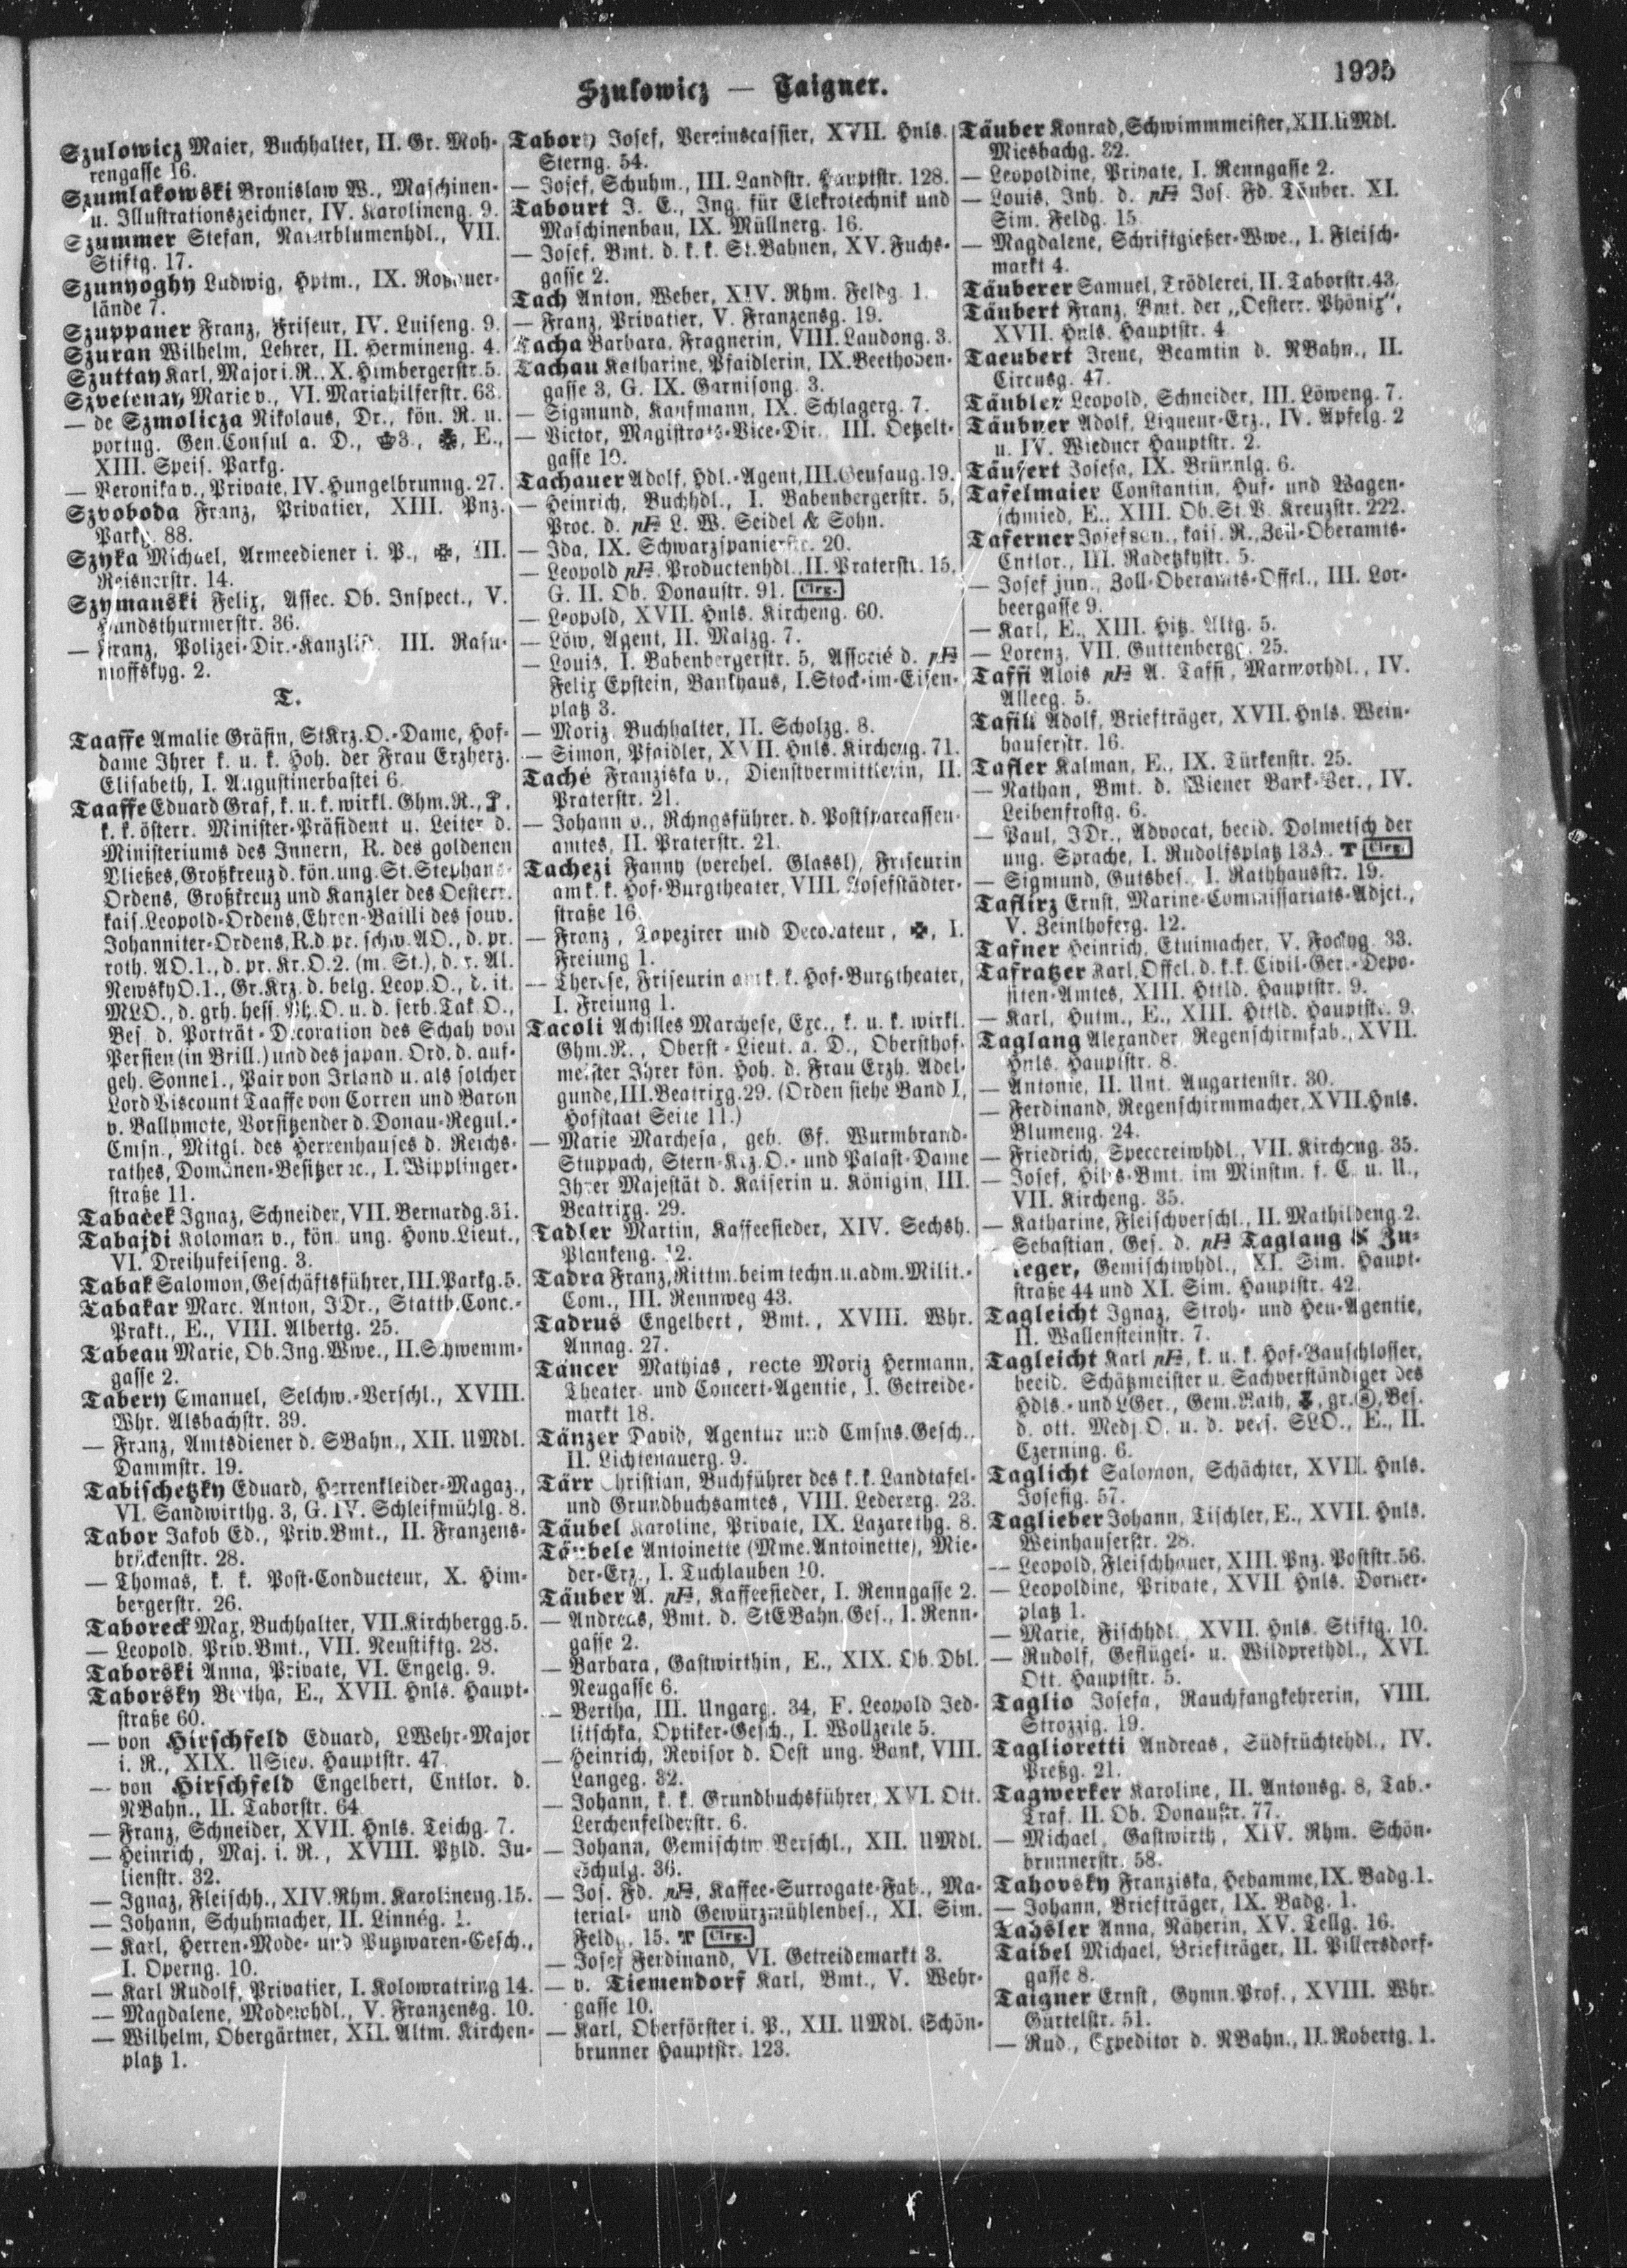 Szulowicz — Taigner.
1995
Szulowicz Maier, Buchhalter, II. Gr. Moh-
rengasse 16.
Szumlakowski Bronislaw W., Maschinen-
u. Illustrationszeichner, IV. Karolineng. 9.
Szummer Stefan, Naturblumenhdl., VII.
Stiftg. 17.
Szunyoghy Ludwig, Hptm., IX. Roßauer-
lände 7.
Szuppaner Franz, Friseur, IV. Luiseng. 9.
Szuran Wilhelm, Lehrer, II. Hermineng. 4.
Szuttay Karl, Major i. R., X. Himbergerstr. 5.
Szvetenay Marie v., VI. Mariahilferstr. 63.
— de Szmolicza Nikolaus, Dr., kön. R. u.
portug. Gen.Consul a. D., 3., E.,
XIII. Speis. Parkg.
— Veronika v., Private, IV. Hungelbrunng. 27.
Szvoboda Franz, Privatier, XIII. Pnz.
Parkg. 88.
Szyka Michael, Armeediener i. P., III.
Reisnerstr. 14.
Szymanski Felix, Assec. Ob. Inspect., V.
Hundsthurmerstr. 36.
— Franz, Polizei-Dir.-Kanzlist, III. Rasu-
moffskyg. 2.
T.
Taaffe Amalie Gräfin, StKrz.O.-Dame, Hof-
dame Ihrer k. u. k. Hoh. der Frau Erzherz.
Elisabeth, I. Augustinerbastei 6.
Taaffe Eduard Graf, k. u. k. wirkl. Ghm. R.,
k. k. österr. Minister-Präsident u. Leiter d.
Ministeriums des Innern, R. des goldenen
Vließes, Großkreuz d. kön. ung. St. Stephans-
Ordens, Großkreuz und Kanzler des Oesterr.
kais. Leopold-Ordens, Ehren-Bailli des souv.
Johanniter-Ordens, R. d. pr. schw. AO., d. pr.
roth. AO.1., d. pr. Kr.O.2. (m. St.), d. r. Al.
NewskyO.1., Gr.Krz. d. belg. Leop.O., d. it.
MLO., d. grh. hess. Ph.O. u. d. serb. Tak.O.,
Bes. d. Porträt-Decoration des Schah von
Persien (in Brill.) und des japan. Ord. d. auf-
geh. Sonne 1., Pair von Irland u. als solcher
Lord Viscount Taaffe von Corren und Baron
v. Ballymote, Vorsitzender d. Donau-Regul.-
Cmsn., Mitgl. des Herrenhauses d. Reichs-
rathes, Domänen-Besitzer ꝛc., I. Wipplinger-
straße 11.
Tabaček Ignaz, Schneider, VII. Bernardg. 31.
Tabajdi Koloman v., kön. ung. Honv. Lieut.,
VI. Dreihufeiseng. 3.
Tabak Salomon, Geschäftsführer, III. Parkg. 5.
Tabakar Marc. Anton, JDr., Statth. Conc.-
Prakt., E., VIII. Albertg. 25.
Tabeau Marie, Ob. Ing. Wwe., II. Schwemm-
gasse 2.
Tabery Emanuel, Selchw.-Verschl., XVIII.
Whr. Alsbachstr. 39.
— Franz, Amtsdiener d. SBahn., XII. UMdl.
Dammstr. 19.
Tabischetzky Eduard, Herrenkleider-Magaz.,
VI. Sandwirthg. 3, G. IV. Schleifmühlg. 8.
Tabor Jakob Ed., Priv. Bmt., II. Franzens-
brückenstr. 28.
— Thomas, k. k. Post-Conducteur, X. Him-
bergerstr. 26.
Taboreck Max, Buchhalter, VII. Kirchbergg. 5.
— Leopold, Priv. Bmt., VII. Neustiftg. 28.
Taborski Anna, Private, VI. Engelg. 9.
Taborsky Bertha, E., XVII. Hnls. Haupt-
straße 60.
— von Hirschfeld Eduard, LWehr-Major
i. R., XIX. USiev. Hauptstr. 47.
— von Hirschfeld Engelbert, Cntlor. d.
NBahn., II. Taborstr. 64.
— Franz, Schneider, XVII. Hnls. Teichg. 7.
— Heinrich, Maj. i. R., XVIII. Ptzld. Ju-
lienstr. 32.
— Ignaz, Fleischh., XIV. Rhm. Karolineng. 15.
— Johann, Schuhmacher, II. Linnég. 1.
— Karl, Herren-Mode- und Putzwaren-Gesch.,
I. Operng. 10.
— Karl Rudolf, Privatier, I. Kolowratring 14.
— Magdalene, Modewhdl., V. Franzensg. 10.
— Wilhelm, Obergärtner, XII. Altm. Kirchen-
platz 1.
Tabory Josef, Vereinscassier, XVII. Hnls.
Sterng. 54.
— Josef, Schuhm., III. Landstr. Hauptstr. 128.
Tabourt J. E., Ing. für Elektrotechnik und
Maschinenbau, IX. Müllnerg. 16.
— Josef, Bmt. d. k. k. St. Bahnen, XV. Fuchs-
gasse 2.
Tach Anton, Weber, XIV. Rhm. Feldg. 1.
— Franz, Privatier, V. Franzensg. 19.
Tacha Barbara, Fragnerin, VIII. Laudong. 3.
Tachau Katharine, Pfaidlerin, IX. Beethoven-
gasse 3, G. IX. Garnisong. 3.
— Sigmund, Kaufmann, IX. Schlagerg. 7.
— Victor, Magistrats-Vice-Dir., III. Oetzelt-
gasse 10.
Tachauer Adolf, Hdl.-Agent, III. Geusaug. 19.
— Heinrich, Buchhdl., I. Babenbergerstr. 5,
Proc. d. pF L. W. Seidel & Sohn.
— Ida, IX. Schwarzspanierstr. 20.
— Leopold pF, Productenhdl., II. Praterstr. 15,
G. II. Ob. Donaustr. 91. Clrg.
— Leopold, XVII. Hnls. Kircheng. 60.
— Löw, Agent, II. Malzg. 7.
— Louis, I. Babenbergerstr. 5, Associé d. pF
Felix Epstein, Bankhaus, I. Stock-im-Eisen-
platz 3.
— Moriz, Buchhalter, II. Scholzg. 8.
— Simon, Pfaidler, XVII. Hnls. Kircheng. 71.
Taché Franziska v., Dienstvermittlerin, II.
Praterstr. 21.
— Johann v., Rchngsführer. d. Postsparcassen-
amtes, II. Praterstr. 21.
Tachezi Fanny (verehel. Glassl), Friseurin
am k. k. Hof-Burgtheater, VIII. Josefstädter-
straße 16.
— Franz, Tapezirer und Decorateur, I.
Freiung 1.
— Therese, Friseurin am k. k. Hof-Burgtheater,
I. Freiung 1.
Tacoli Achilles Marchese, Exc., k. u. k. wirkl.
Ghm.R., Oberst-Lieut. a. D., Obersthof-
meister Ihrer kön. Hoh. d. Frau Erzh. Adel-
gunde, III. Beatrixg. 29. (Orden siehe Band I,
Hofstaat Seite 11.)
— Marie Marchesa, geb. Gf. Wurmbrand-
Stuppach, Stern-Krz.O.- und Palast-Dame
Ihrer Majestät d. Kaiserin u. Königin, III.
Beatrixg. 29.
Tadler Martin, Kaffeesieder, XIV. Sechsh.
Plankeng. 12.
Tadra Franz, Rittm. beim techn. u. adm. Milit.-
Com., III. Rennweg 43.
Tadrus Engelbert, Bmt., XVIII. Whr.
Annag. 27.
Täncer Mathias, recte Moriz Hermann,
Theater- und Concert-Agentie, I. Getreide-
markt 18.
Tänzer David, Agentur und Cmsns. Gesch.,
II. Lichtenauerg. 9.
Tärr Christian, Buchführer des k. k. Landtafel-
und Grundbuchsamtes, VIII. Ledererg. 23.
Täubel Karoline, Private, IX. Lazarethg. 8.
Täubele Antoinette (Mme. Antoinette), Mie-
der-Erz., I. Tuchlauben 10.
Täuber A. pF, Kaffeesieder, I. Renngasse 2.
— Andreas, Bmt. d. StEBahn. Ges., I. Renn-
gasse 2.
— Barbara, Gastwirthin, E., XIX. Ob. Dbl.
Neugasse 6.
— Bertha, III. Ungarg. 34, F. Leopold Jed-
litschka, Optiker-Gesch., I. Wollzeile 5.
— Heinrich, Revisor d. Oest ung. Bank, VIII.
Langeg. 32.
— Johann, k. k. Grundbuchsführer, XVI. Ott.
Lerchenfelderstr. 6.
— Johann, Gemischtw. Verschl., XII. UMdl.
Schulg. 36.
— Jos. Fd. pF, Kaffee-Surrogate-Fab., Ma-
terial- und Gewürzmühlenbes., XI. Sim.
Feldg. 15. T Clrg.
— Josef Ferdinand, VI. Getreidemarkt 3.
— v. Tiemendorf Karl, Bmt., V. Wehr-
gasse 10.
— Karl, Oberförster i. P., XII. UMdl. Schön-
brunner Hauptstr. 123.
Täuber Konrad, Schwimmmeister, XII. UMdl.
Miesbachg. 32.
— Leopoldine, Private, I. Renngasse 2.
— Louis, Inh. d. pF Jos. Fd. Täuber. XI.
Sim. Feldg. 15.
— Magdalene, Schriftgießer-Wwe., I. Fleisch-
markt 4.
Täuberer Samuel, Trödlerei, II. Taborstr. 43.
Täubert Franz, Bmt. der „Oesterr. Phönix“,
XVII. Hnls. Hauptstr. 4.
Taeubert Irene, Beamtin d. NBahn., II.
Circusg. 47.
Täubler Leopold, Schneider, III. Löweng. 7.
Täubner Adolf, Liqueur-Erz., IV. Apfelg. 2
u. IV. Wiedner Hauptstr. 2.
Täufert Josefa, IX. Brünnlg. 6.
Tafelmaier Constantin, Huf- und Wagen-
schmied, E., XIII. Ob. St. V. Kreuzstr. 222.
Taferner Josef sen., kais. R., Zoll-Oberamts-
Cntlor., III. Radetzkystr. 5.
— Josef jun., Zoll-Oberamts-Offcl., III. Lor-
beergasse 9.
— Karl, E., XIII. Hitz. Altg. 5.
— Lorenz, VII. Guttenbergg. 25.
Taffi Alois pF A. Taffi, Marmorhdl., IV.
Alleeg. 5.
Tafili Adolf, Briefträger, XVII. Hnls. Wein-
hauserstr. 16.
Tafler Kalman, E., IX. Türkenstr. 25.
— Nathan, Bmt. d. Wiener Bank-Ver., IV.
Leibenfrostg. 6.
— Paul, JDr., Advocat, beeid. Dolmetsch der
ung. Sprache, I. Rudolfsplatz 13A. T Clrg.
— Sigmund, Gutsbes., I. Rathhausstr. 19.
Taflirz Ernst, Marine-Commissariats-Adjct.,
V. Zeinlhoferg. 12.
Tafner Heinrich, Etuimacher, V. Fockyg. 33.
Tafratzer Karl, Offcl. d. k. k. Civil-Ger.-Depo-
siten-Amtes, XIII. Httld. Hauptstr. 9.
— Karl, Hutm., E., XIII. Httld. Hauptstr. 9.
Taglang Alexander, Regenschirmfab., XVII.
Hnls. Hauptstr. 8.
— Antonie, II. Unt. Augartenstr. 30.
— Ferdinand, Regenschirmmacher, XVII. Hnls.
Blumeng. 24.
— Friedrich, Specereiwhdl., VII. Kircheng. 35.
— Josef, Hilfs-Bmt. im Minstm. f. C. u. U.,
VII. Kircheng. 35.
— Katharine, Fleischverschl., II. Mathildeng. 2.
— Sebastian, Ges. d. pF Taglang & Zu-
leger, Gemischtwhdl., XI. Sim. Haupt-
straße 44 und XI. Sim. Hauptstr. 42.
Tagleicht Ignaz, Stroh- und Heu-Agentie,
II. Wallensteinstr. 7.
Tagleicht Karl pF, k. u. k. Hof-Bauschlosser,
beeid. Schätzmeister u. Sachverständiger des
Hdls.- und LGer., Gem. Rath, gr. Bes.
d. ott. Medj.O. u. d. pers. SLO., E., II.
Czerning. 6.
Taglicht Salomon, Schächter, XVII. Hnls.
Josefig. 57.
Taglieber Johann, Tischler, E., XVII. Hnls.
Weinhauserstr. 28.
— Leopold, Fleischhauer, XIII. Pnz. Poststr. 56.
— Leopoldine, Private, XVII. Hnls. Dorner-
platz 1.
— Marie, Fischhdl., XVII. Hnls. Stiftg. 10.
— Rudolf, Geflügel- u. Wildprethdl., XVI.
Ott. Hauptstr. 5.
Taglio Josefa, Rauchfangkehrerin, VIII.
Strozzig. 19.
Taglioretti Andreas, Südfrüchtehdl., IV.
Preßg. 21.
Tagwerker Karoline, II. Antonsg. 8, Tab.-
Traf. II. Ob. Donaustr. 77.
— Michael, Gastwirth, XIV. Rhm. Schön-
brunnerstr. 58.
Tahovsky Franziska, Hebamme, IX. Badg. 1.
— Johann, Briefträger, IX. Badg. 1.
Tahsler Anna, Näherin, XV. Tellg. 16.
Taibel Michael, Briefträger, II. Pillersdorf-
gasse 8.
Taigner Ernst, Gymn. Prof., XVIII. Whr.
Gürtelstr. 51.
— Rud., Expeditor d. NBahn., II. Robertg. 1.